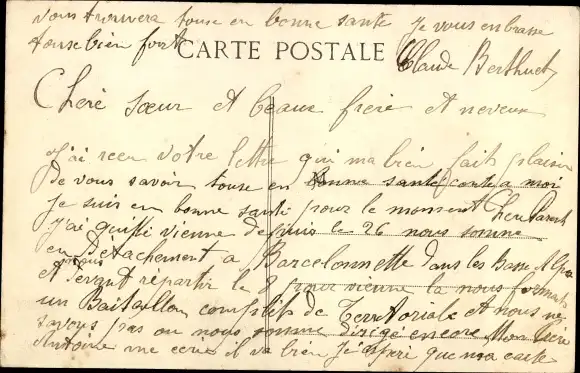 vous trouvera touse en bonne santé je vous enbrasse
touse bien fort
CARTE POSTALE
Claude Berthuet
Cheré sœur et beaux frére et neveux
J'ai recu votre lettre qui ma bien fait plaisir
de vous savoir touse en bonne santé conta a moi
je suis en bonne santé pour le moment Cher Parent
j'ai quitté vienne depuis le 26 nous somme
en Détachement a Barcelonnette dans les Basse Alpes
et devant répartir le 8 pour vienne la nous formant
un Bataillon complés de Territoriale et nous ne
savons pas ou nous somme dirigé encore Mon frére
Antoine me ecrie il va bien J'éspére que ma carte